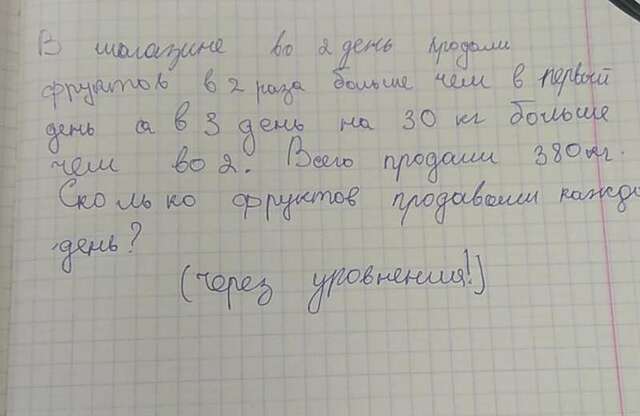 В магазине во 2 день продали
фруктов в 2 раза больше чем в первый
день а в 3 день на 30 кг больше
чем во 2. Всего продали 380кг.
Сколько фруктов продавали кажды
день?
(через уровнения!)